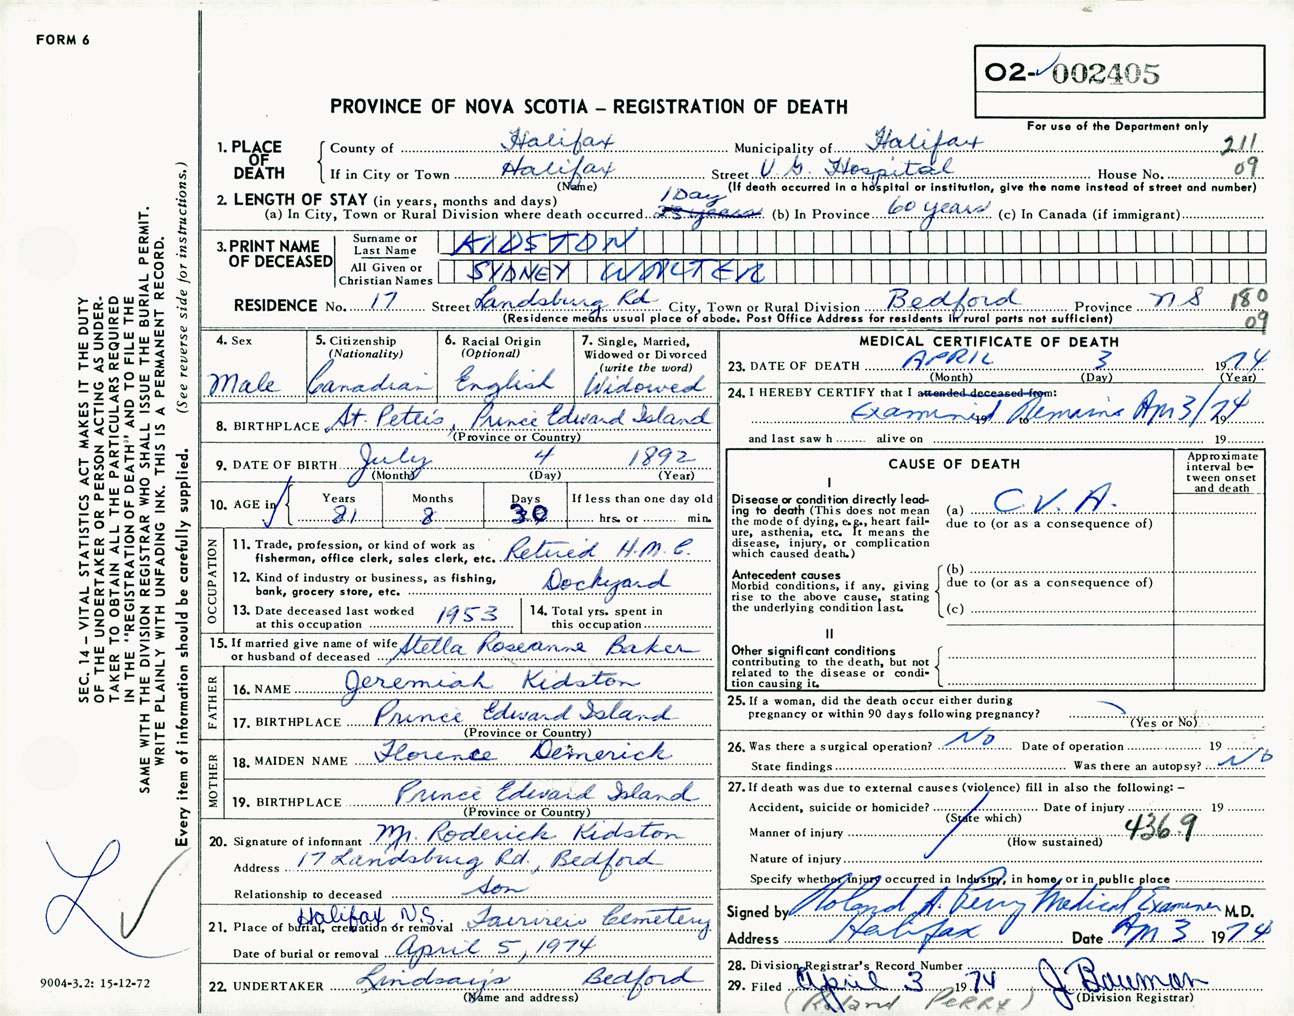 FORM 6
02- 002405
PROVINCE OF NOVA SCOTIA – REGISTRATION OF DEATH
For use of the Department only
1. PLACE OF DEATH
County of Halifax Municipality of Halifax 211
If in City or Town Halifax Street V. G. Hospital House No. 09
(Name) (If death occurred in a hospital or institution, give the name instead of street and number)
2. LENGTH OF STAY (in years, months and days) 1 Day
(a) In City, Town or Rural Division where death occurred 23 years (b) In Province 60 years (c) In Canada (if immigrant)
3. PRINT NAME OF DECEASED
Surname or Last Name KIDSTON
All Given or Christian Names SYDNEY WALTER
RESIDENCE No. 17 Street Landsburg Rd City, Town or Rural Division Bedford Province NS 180
(Residence means usual place of abode. Post Office Address for residents in rural parts not sufficient) 09
4. Sex
Male
5. Citizenship
(Nationality)
Canadian
6. Racial Origin
(Optional)
English
7. Single, Married,
Widowed or Divorced
(write the word)
Widowed
8. BIRTHPLACE St. Peters, Prince Edward Island
(Province or Country)
9. DATE OF BIRTH July 4 1892
(Month) (Day) (Year)
10. AGE in Years Months Days If less than one day old
81 8 30 hrs. or min.
OCCUPATION
11. Trade, profession, or kind of work as
fisherman, office clerk, sales clerk, etc. Retired H.M.C.
12. Kind of industry or business, as fishing,
bank, grocery store, etc. Dockyard
13. Date deceased last worked
at this occupation 1953
14. Total yrs. spent in
this occupation
15. If married give name of wife
or husband of deceased Stella Roseanne Baker
FATHER
16. NAME Jeremiah Kidston
17. BIRTHPLACE Prince Edward Island
(Province or Country)
MOTHER
18. MAIDEN NAME Florence Demerick
19. BIRTHPLACE Prince Edward Island
(Province or Country)
20. Signature of informant Mr. Roderick Kidston
Address 17 Landsburg Rd., Bedford
Relationship to deceased Son
21. Place of burial, cremation or removal Halifax N.S. Fairview Cemetery
Date of burial or removal April 5, 1974
22. UNDERTAKER Lindsay's Bedford
(Name and address)
MEDICAL CERTIFICATE OF DEATH
23. DATE OF DEATH APRIL 3 1974
(Month) (Day) (Year)
24. I HEREBY CERTIFY that I attended deceased from:
Examined Remains Apr 3/74
19 to 19
and last saw h alive on 19
CAUSE OF DEATH
Approximate
interval be-
tween onset
and death
I
Disease or condition directly lead-
ing to death (This does not mean
the mode of dying, e.g., heart fail-
ure, asthenia, etc. It means the
disease, injury, or complication
which caused death.)
(a) C.V.A.
due to (or as a consequence of)
Antecedent causes
Morbid conditions, if any, giving
rise to the above cause, stating
the underlying condition last.
(b)
due to (or as a consequence of)
(c)
II
Other significant conditions
contributing to the death, but not
related to the disease or condi-
tion causing it.
25. If a woman, did the death occur either during
pregnancy or within 90 days following pregnancy?
(Yes or No)
26. Was there a surgical operation? No Date of operation 19
State findings Was there an autopsy? No
27. If death was due to external causes (violence) fill in also the following: –
Accident, suicide or homicide? Date of injury 19
(State which)
Manner of injury 436.9
(How sustained)
Nature of injury
Specify whether injury occurred in Industry, in home, or in public place
Signed by Roland A. Perry Medical Examiner M.D.
Address Halifax Date Apr 3 1974
28. Division Registrar's Record Number
29. Filed April 3 1974 J. Bowman
(Division Registrar)
(Roland PERRY)
SEC. 14 – VITAL STATISTICS ACT MAKES IT THE DUTY
OF THE UNDERTAKER OR PERSON ACTING AS UNDER-
TAKER TO OBTAIN ALL THE PARTICULARS REQUIRED
IN THE "REGISTRATION OF DEATH" AND TO FILE THE
SAME WITH THE DIVISION REGISTRAR WHO SHALL ISSUE THE BURIAL PERMIT.
WRITE PLAINLY WITH UNFADING INK. THIS IS A PERMANENT RECORD.
Every item of information should be carefully supplied. (See reverse side for instructions.)
9004-3.2: 15-12-72